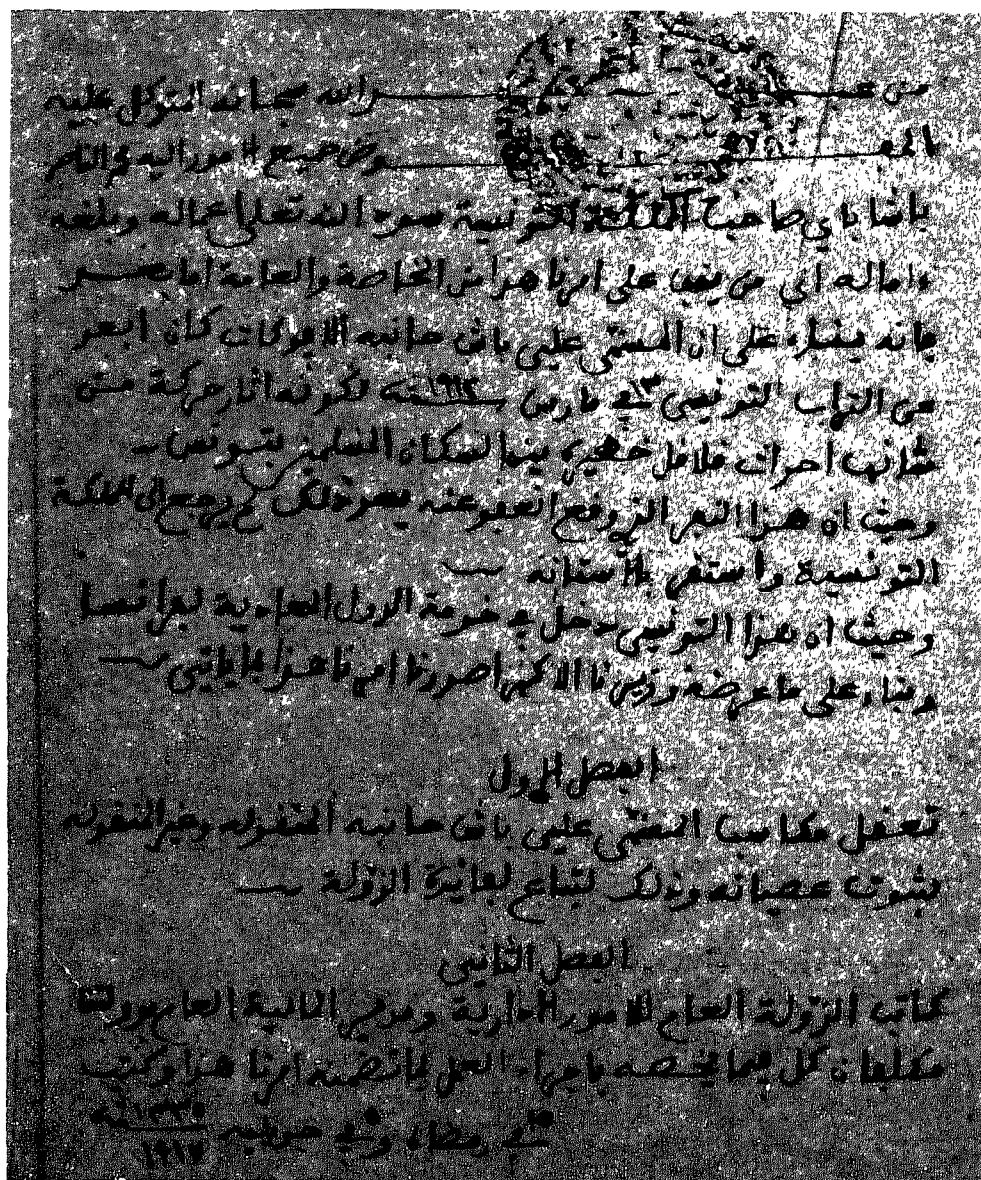 من عبد الله سبحانه المتوكل عليه
المفوض جميع الأمور اليه محمد الناصر
باشا باي صاحب المملكة التونسية سدد الله تعالى أعماله وبلغه
ءاماله الى من يقف على امرنا هذا من الخاصة والعامة اما بعد
فانه بناء على ان المسمى علي باش حانبه الابوكات كان ابعد
من التراب التونسي في ١٣ مارس سنة ١٩١٢ لكونه اثار حركة من
شانها احداث قلاقل بين السكان المسلمين بتونس
وحيث ان هذا النفر الذي وقع العفو عنه بعد ذلك لم يرجع الى المملكة
التونسية واستقر بالأستانه
وحيث ان هذا التونسي دخل في خدمة الدول المعادية لفرانسا
وبناء على ما عرضه وزيرنا الاكبر اصدرنا امرنا هذا بما ياتي
الفصل الاول
تعقل مكاسب المسمى علي باش حانبه المنقوله وغير المنقوله
بثبوت عصيانه وذلك لتباع لفايدة الدولة
الفصل الثاني
كاتب الدولة العام للامور الادارية ومدير المالية العام بدولتنا
مكلفان كل فيما يخصه باجراء العمل بما تضمنه امرنا هذا وكتب
في رمضان وفي جويليه ١٣٣٥ سنة
١٩١٧